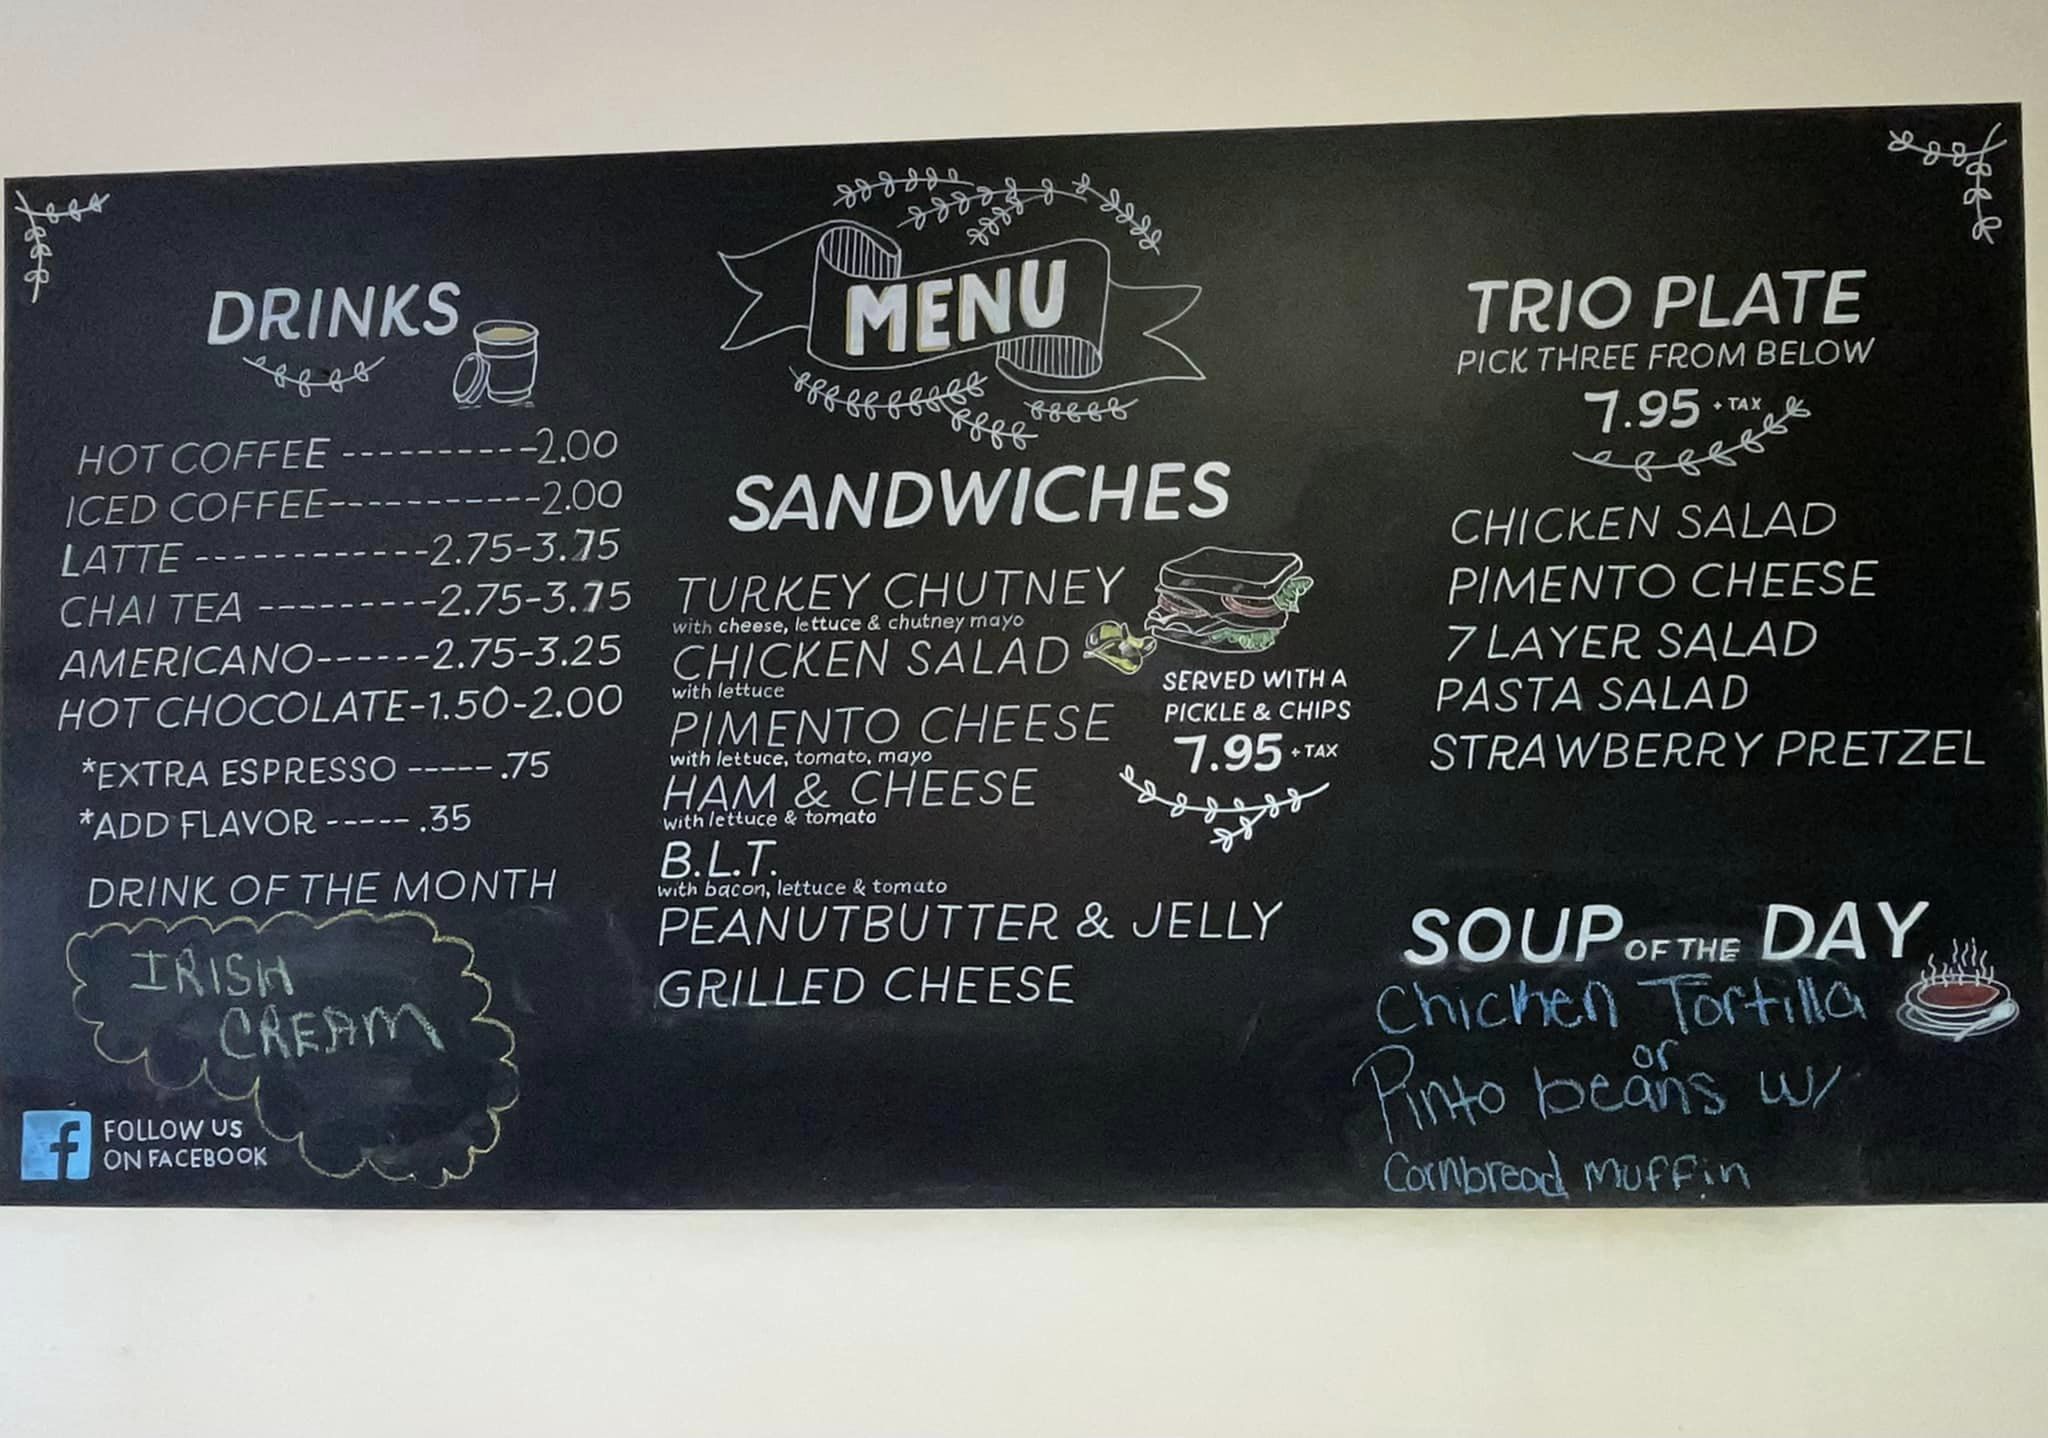 MENU
DRINKS
HOT COFFEE ----------2.00
ICED COFFEE-----------2.00
LATTE ------------2.75-3.75
CHAI TEA ---------2.75-3.75
AMERICANO------2.75-3.25
HOT CHOCOLATE-1.50-2.00
*EXTRA ESPRESSO -----.75
*ADD FLAVOR ----- .35
DRINK OF THE MONTH
IRISH
CREAM
f
FOLLOW US
ON FACEBOOK
SANDWICHES
TURKEY CHUTNEY
with cheese, lettuce & chutney mayo
CHICKEN SALAD
with lettuce
PIMENTO CHEESE
with lettuce, tomato, mayo
HAM & CHEESE
with lettuce & tomato
B.L.T.
with bacon, lettuce & tomato
PEANUTBUTTER & JELLY
GRILLED CHEESE
SERVED WITH A
PICKLE & CHIPS
7.95 + TAX
TRIO PLATE
PICK THREE FROM BELOW
7.95 + TAX
CHICKEN SALAD
PIMENTO CHEESE
7 LAYER SALAD
PASTA SALAD
STRAWBERRY PRETZEL
SOUP OF THE DAY
Chicken Tortilla
or
Pinto beans w/
Cornbread muffin